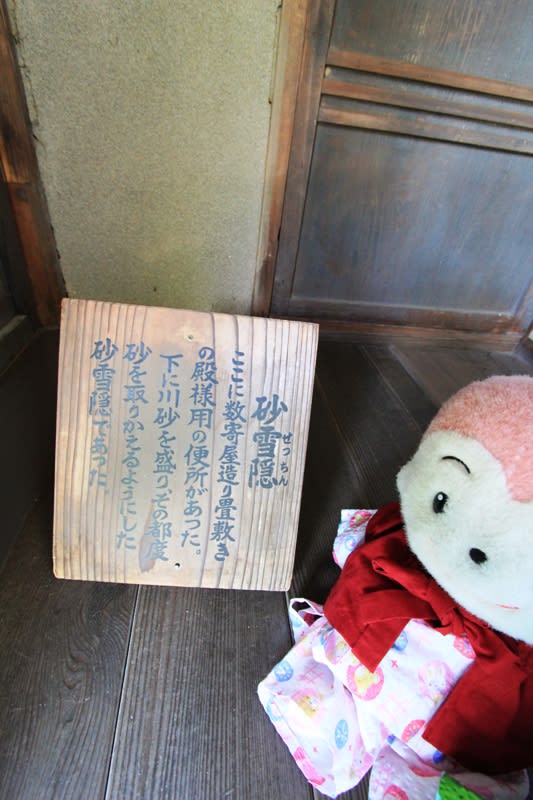 砂雪隠
せっちん
ここに数寄屋造り畳敷き
の殿様用の便所があった。
下に川砂を盛りその都度
砂を取りかえるようにした
砂雪隠であった。